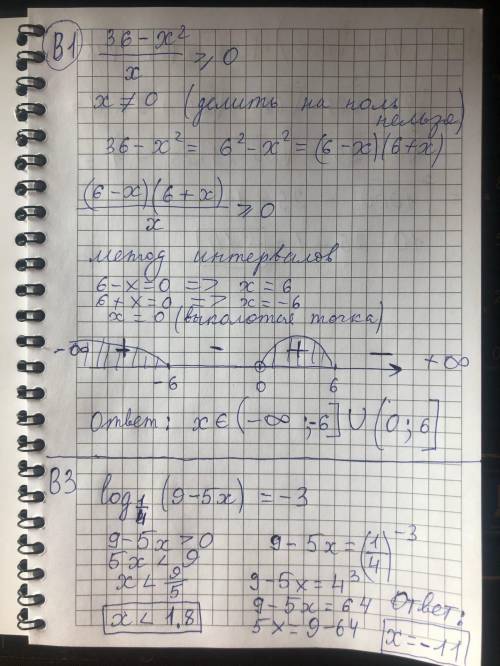 B1
(36-x²)/x ≥ 0
x ≠ 0 (делить на ноль
нельзя)
36-x² = 6²-x² = (6-x)(6+x)
(6-x)(6+x)/x ≥ 0
метод интервалов
6-x=0 => x=6
6+x=0 => x=-6
x=0 (выколотая точка)
-∞ + - + - +∞
-6 0 6
Ответ: x∈(-∞;-6]∪(0;6]
B3
log_{1/4} (9-5x) = -3
9-5x>0
5x<9
x < 9/5
x < 1.8
9-5x=(1/4)^{-3}
9-5x=4³
9-5x=64
5x=9-64
Ответ:
x=-11